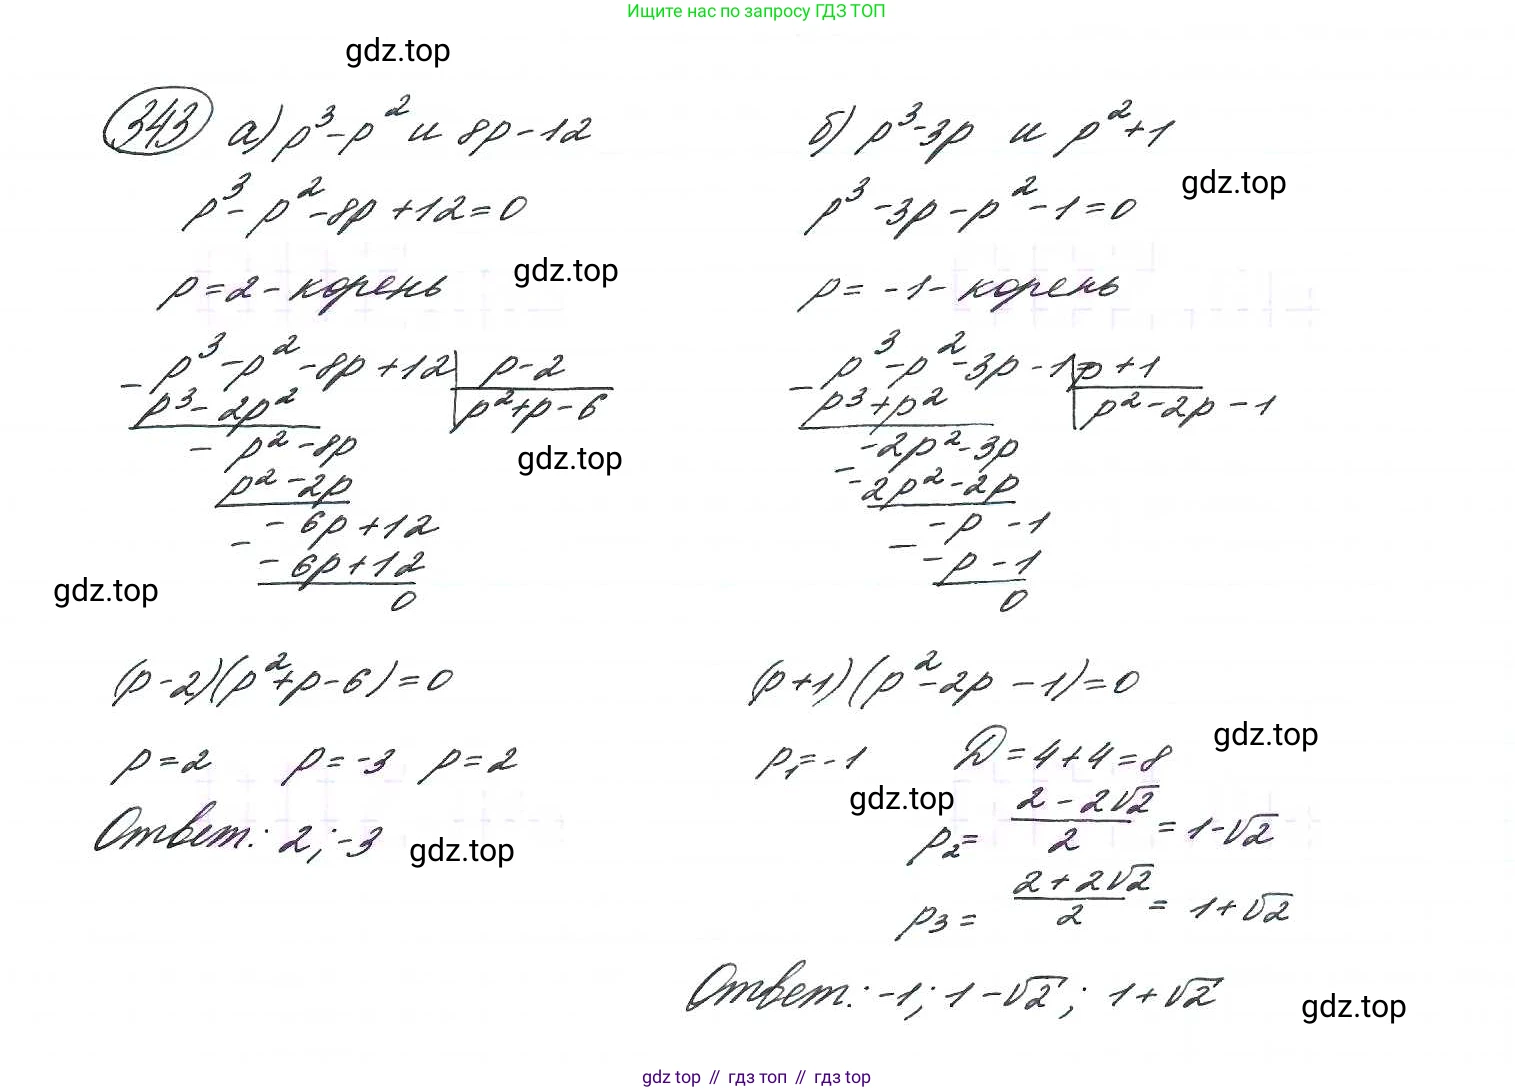 Ищите нас по запросу ГДЗ ТОП
gdz.top
343 а) p³-p² и 8p-12
p³-p²-8p+12=0
gdz.top
p=2-корень
p³-p²-8p+12 | p-2
- p³-2p² | p²+p-6
- p²-8p
gdz.top
p²-2p
-6p+12
- -6p+12
0
gdz.top
(p-2)(p²+p-6)=0
p=2 p=-3 p=2
Ответ: 2;-3
gdz.top
б) p³-3p и p²+1
gdz.top
p³-3p-p²-1=0
p=-1-корень
p³-p²-3p-1 | p+1
- p³+p² | p²-2p-1
-2p²-3p
- -2p²-2p
-p-1
- -p-1
0
(p+1)(p²-2p-1)=0
gdz.top
p₁=-1 D=4+4=8
gdz.top
p₂= (2-2√2)/2 =1-√2
p₃= (2+2√2)/2 = 1+√2
Ответ: -1; 1-√2; 1+√2
gdz.top
gdz top // гдз топ // гдз top